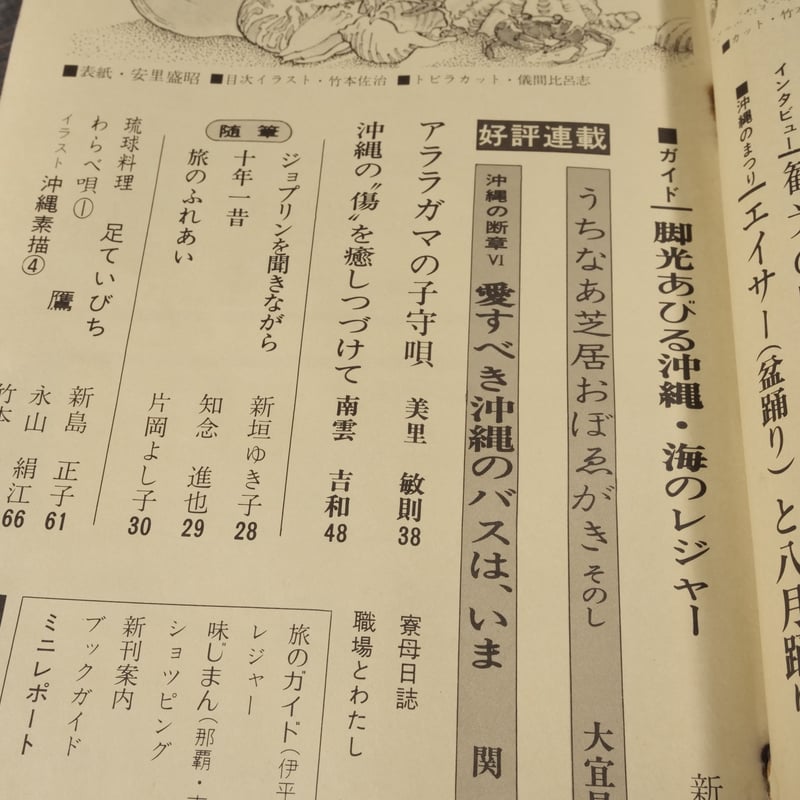 ■表紙・安里盛昭 ■目次イラスト・竹本佐治 ■トビラカット・儀間比呂志
インタビュー
■沖縄のまつり エイサー(盆踊り)と八月踊り
■ガイド 脚光あびる沖縄・海のレジャー
新
好評連載
うちなあ芝居おぼゑがき そのし 大宜
沖縄の断章Ⅵ 愛すべき沖縄のバスは、いま 関
アララガマの子守唄 美里 敏則 38
沖縄の“傷”を癒しつづけて 南雲 吉和 48
随筆
ジョプリンを聞きながら 新垣ゆき子 28
十年一昔 知念 進也 29
旅のふれあい 片岡よし子 30
琉球料理 足ていびち 新島 正子 61
わらべ唄① 鷹 永山 絹江 66
イラスト 沖縄素描④ 竹本
寮母日誌
職場とわたし
旅のガイド(伊平
レジャー
味じまん(那覇・
ショッピング
新刊案内
ブックガイド
ミニレポート